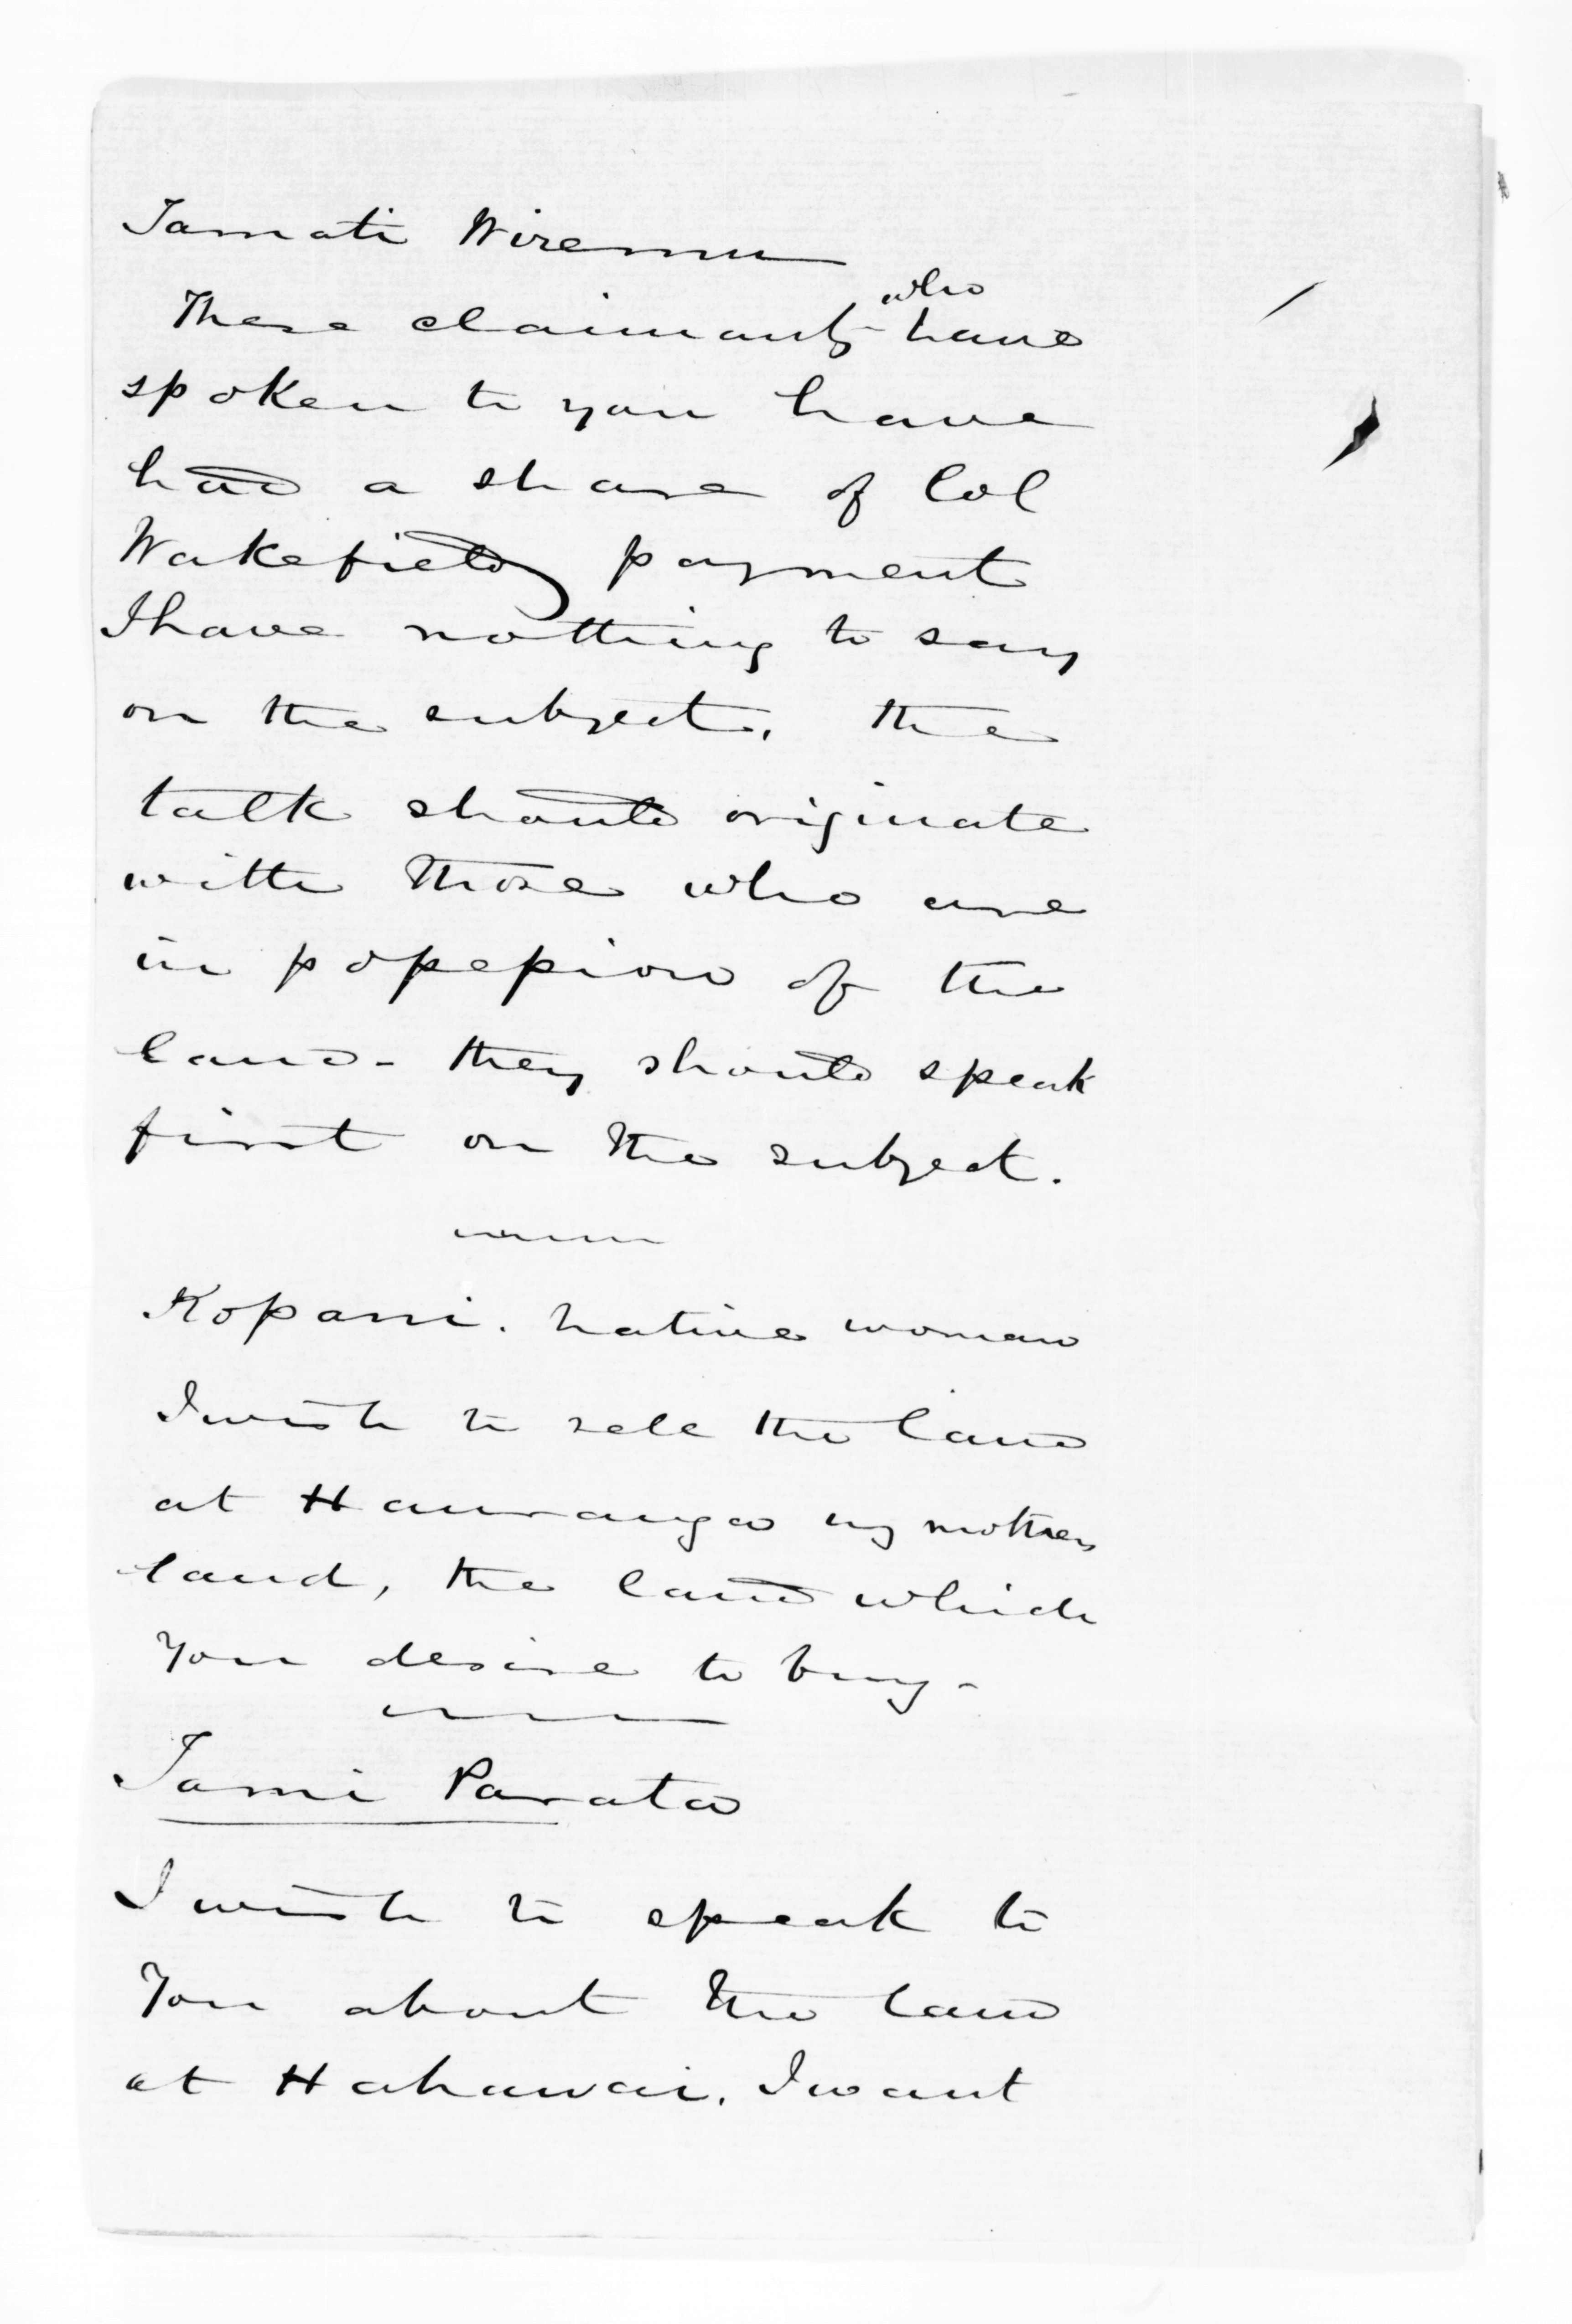 Tamati Wiremu
These claimants who have
spoken to you have
had a share of Col
Wakefields payment
I have nothing to say
on the subject, the
talk should originate
with those who are
in possession of the
land - they should speak
first on the subject.
Kopani. Native woman
I wish to sell the land
at Hauranga my mothers
land, the land which
you desire to buy -
Tami Parata
I wish to speak to
You about the land
at Hahawai. I want